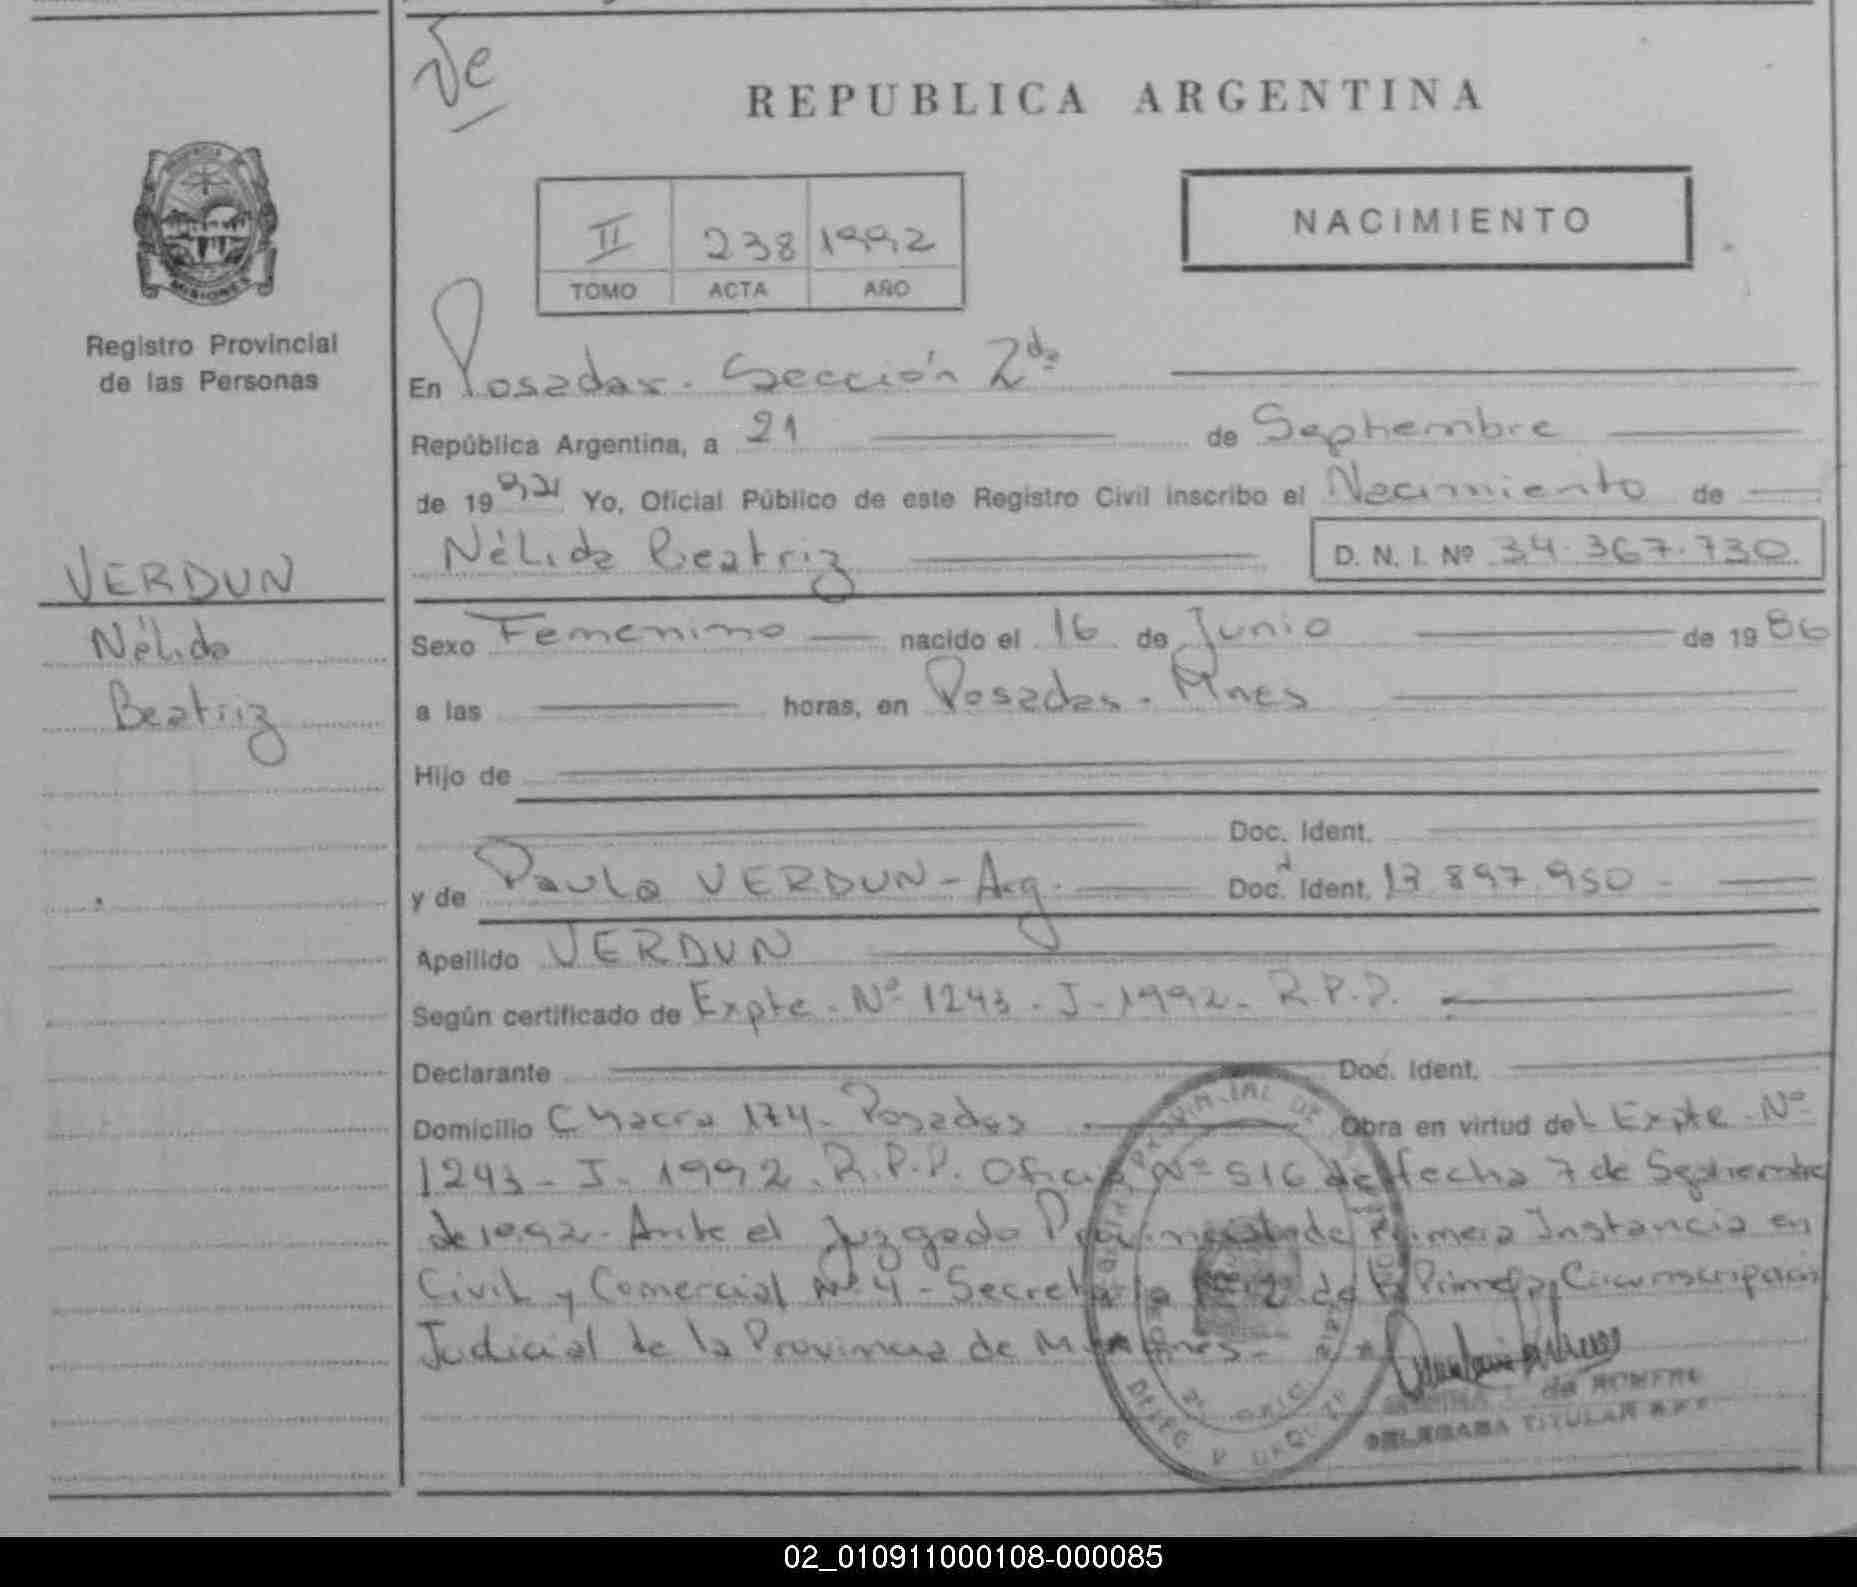 Ve
REPUBLICA ARGENTINA
NACIMIENTO
II 238 1992
TOMO ACTA AÑO
MISIONES
Registro Provincial
de las Personas
En Posadas. Sección 2da
República Argentina, a 21 de Septiembre
de 1992 Yo, Oficial Público de este Registro Civil inscribo el Nacimiento de
Nélida Beatriz D. N. I. Nº 34.367.730.
VERDUN
Nélida
Beatriz
Sexo Femenino nacido el 16 de Junio de 1986
a las horas, en Posadas. Mnes
Hijo de
Doc. Ident.
y de Paula VERDUN - Arg. Doc. Ident. 17.897.950
Apellido VERDUN
Según certificado de Expte. Nº 1243 - J - 1992 - R.P.P.
Declarante Doc. Ident.
Domicilio Chacra 174 - Posadas Obra en virtud del Expte. Nº
1243 - J - 1992. R.P.P. Oficio Nº 516 de fecha 7 de Septiembre
de 1992. Ante el Juzgado Provincial de Primera Instancia en
Civil y Comercial Nº 4 - Secretaría Nº 2 de la Primera Circunscripción
Judicial de la Provincia de Misiones.
de ROMERO
DELEGADA TITULAR
02_010911000108-000085